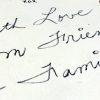 th Love
m Friend
& Famil